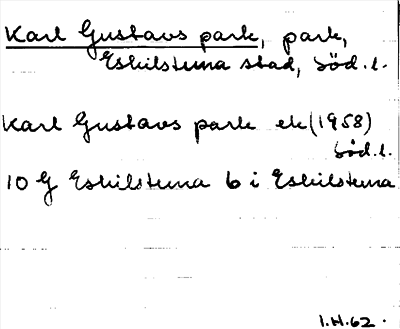 Karl Gustavs park, park,
Eskilstuna stad, Söd.l.
Karl Gustavs park ek (1958)
Söd.l.
10 G Eskilstuna 6 i Eskilstuna
I.H.62.